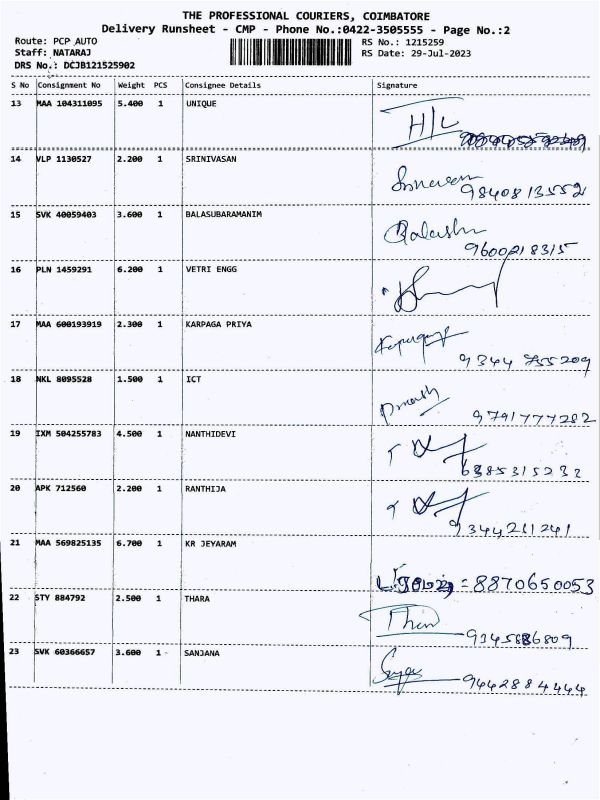 THE PROFESSIONAL COURIERS, COIMBATORE
Delivery Runsheet - CMP - Phone No.:0422-3505555 - Page No.:2
Route: PCP AUTO
Staff: NATARAJ
DRS No.: DCJB121525902
RS No.: 1215259
RS Date: 29-Jul-2023
S No Consignment No Weight PCS Consignee Details Signature
13 MAA 104311095 5.400 1 UNIQUE H/L
14 VLP 1130527 2.200 1 SRINIVASAN
9840813552
15 SVK 40059403 3.600 1 BALASUBARAMANIM
9600218315
16 PLN 1459291 6.200 1 VETRI ENGG
17 MAA 600193919 2.300 1 KARPAGA PRIYA
18 NKL 8095528 1.500 1 ICT
9791777282
19 IXM 504255783 4.500 1 NANTHIDEVI
20 APK 712560 2.200 1 RANTHIJA
9344211241
21 MAA 569825135 6.700 1 KR JEYARAM
= 8870650053
22 STY 884792 2.500 1 THARA
23 SVK 60366657 3.600 1 SANJANA
9442884444